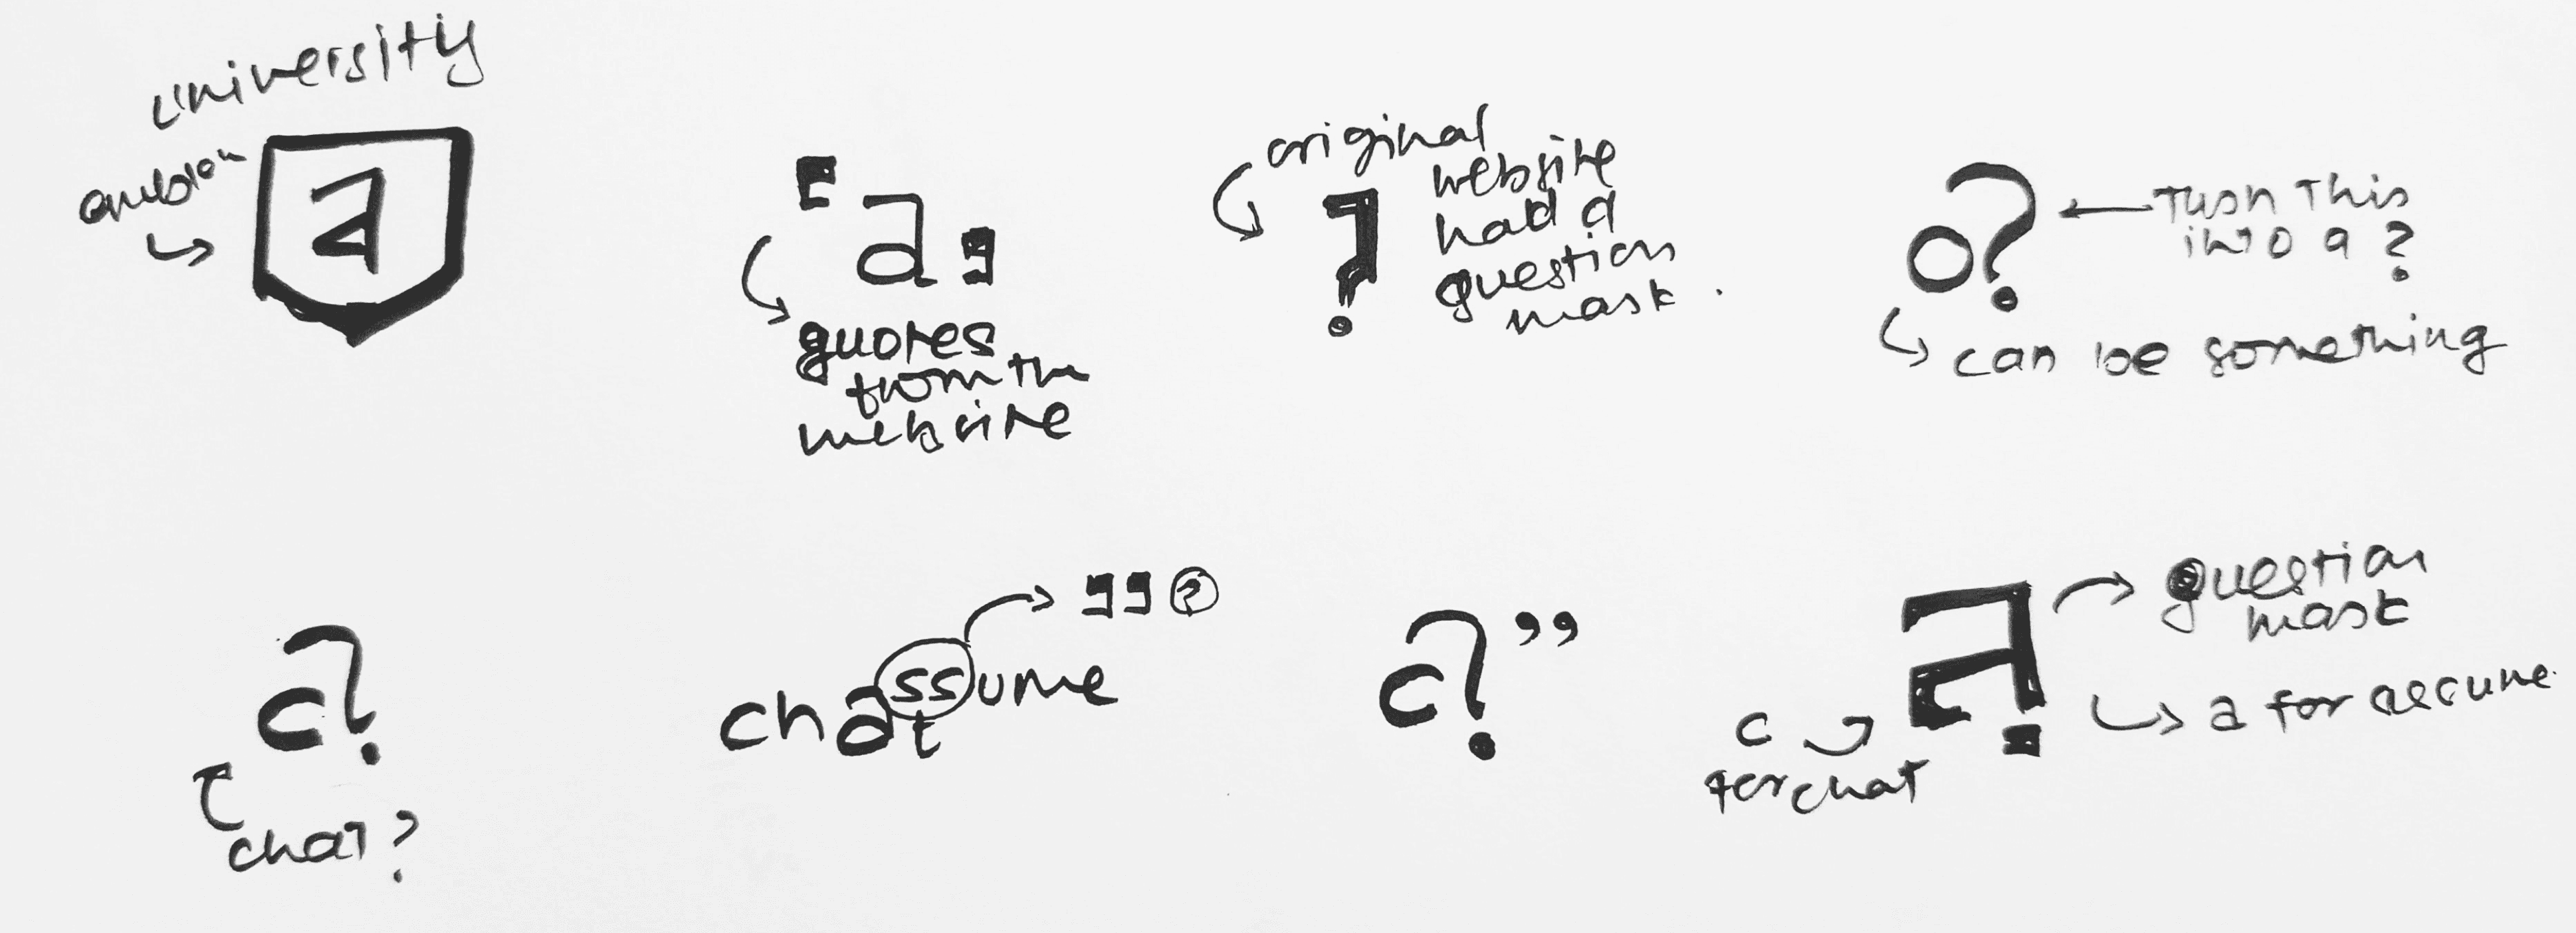 university
a
"a"
quotes
from the
website
original
website
had a
question
mark.
?
a?
Turn This
into a ?
can be something
c?
chat?
chat
assume
,, ?
c? ,,
a?
question
mark
a for assume
c
for chat